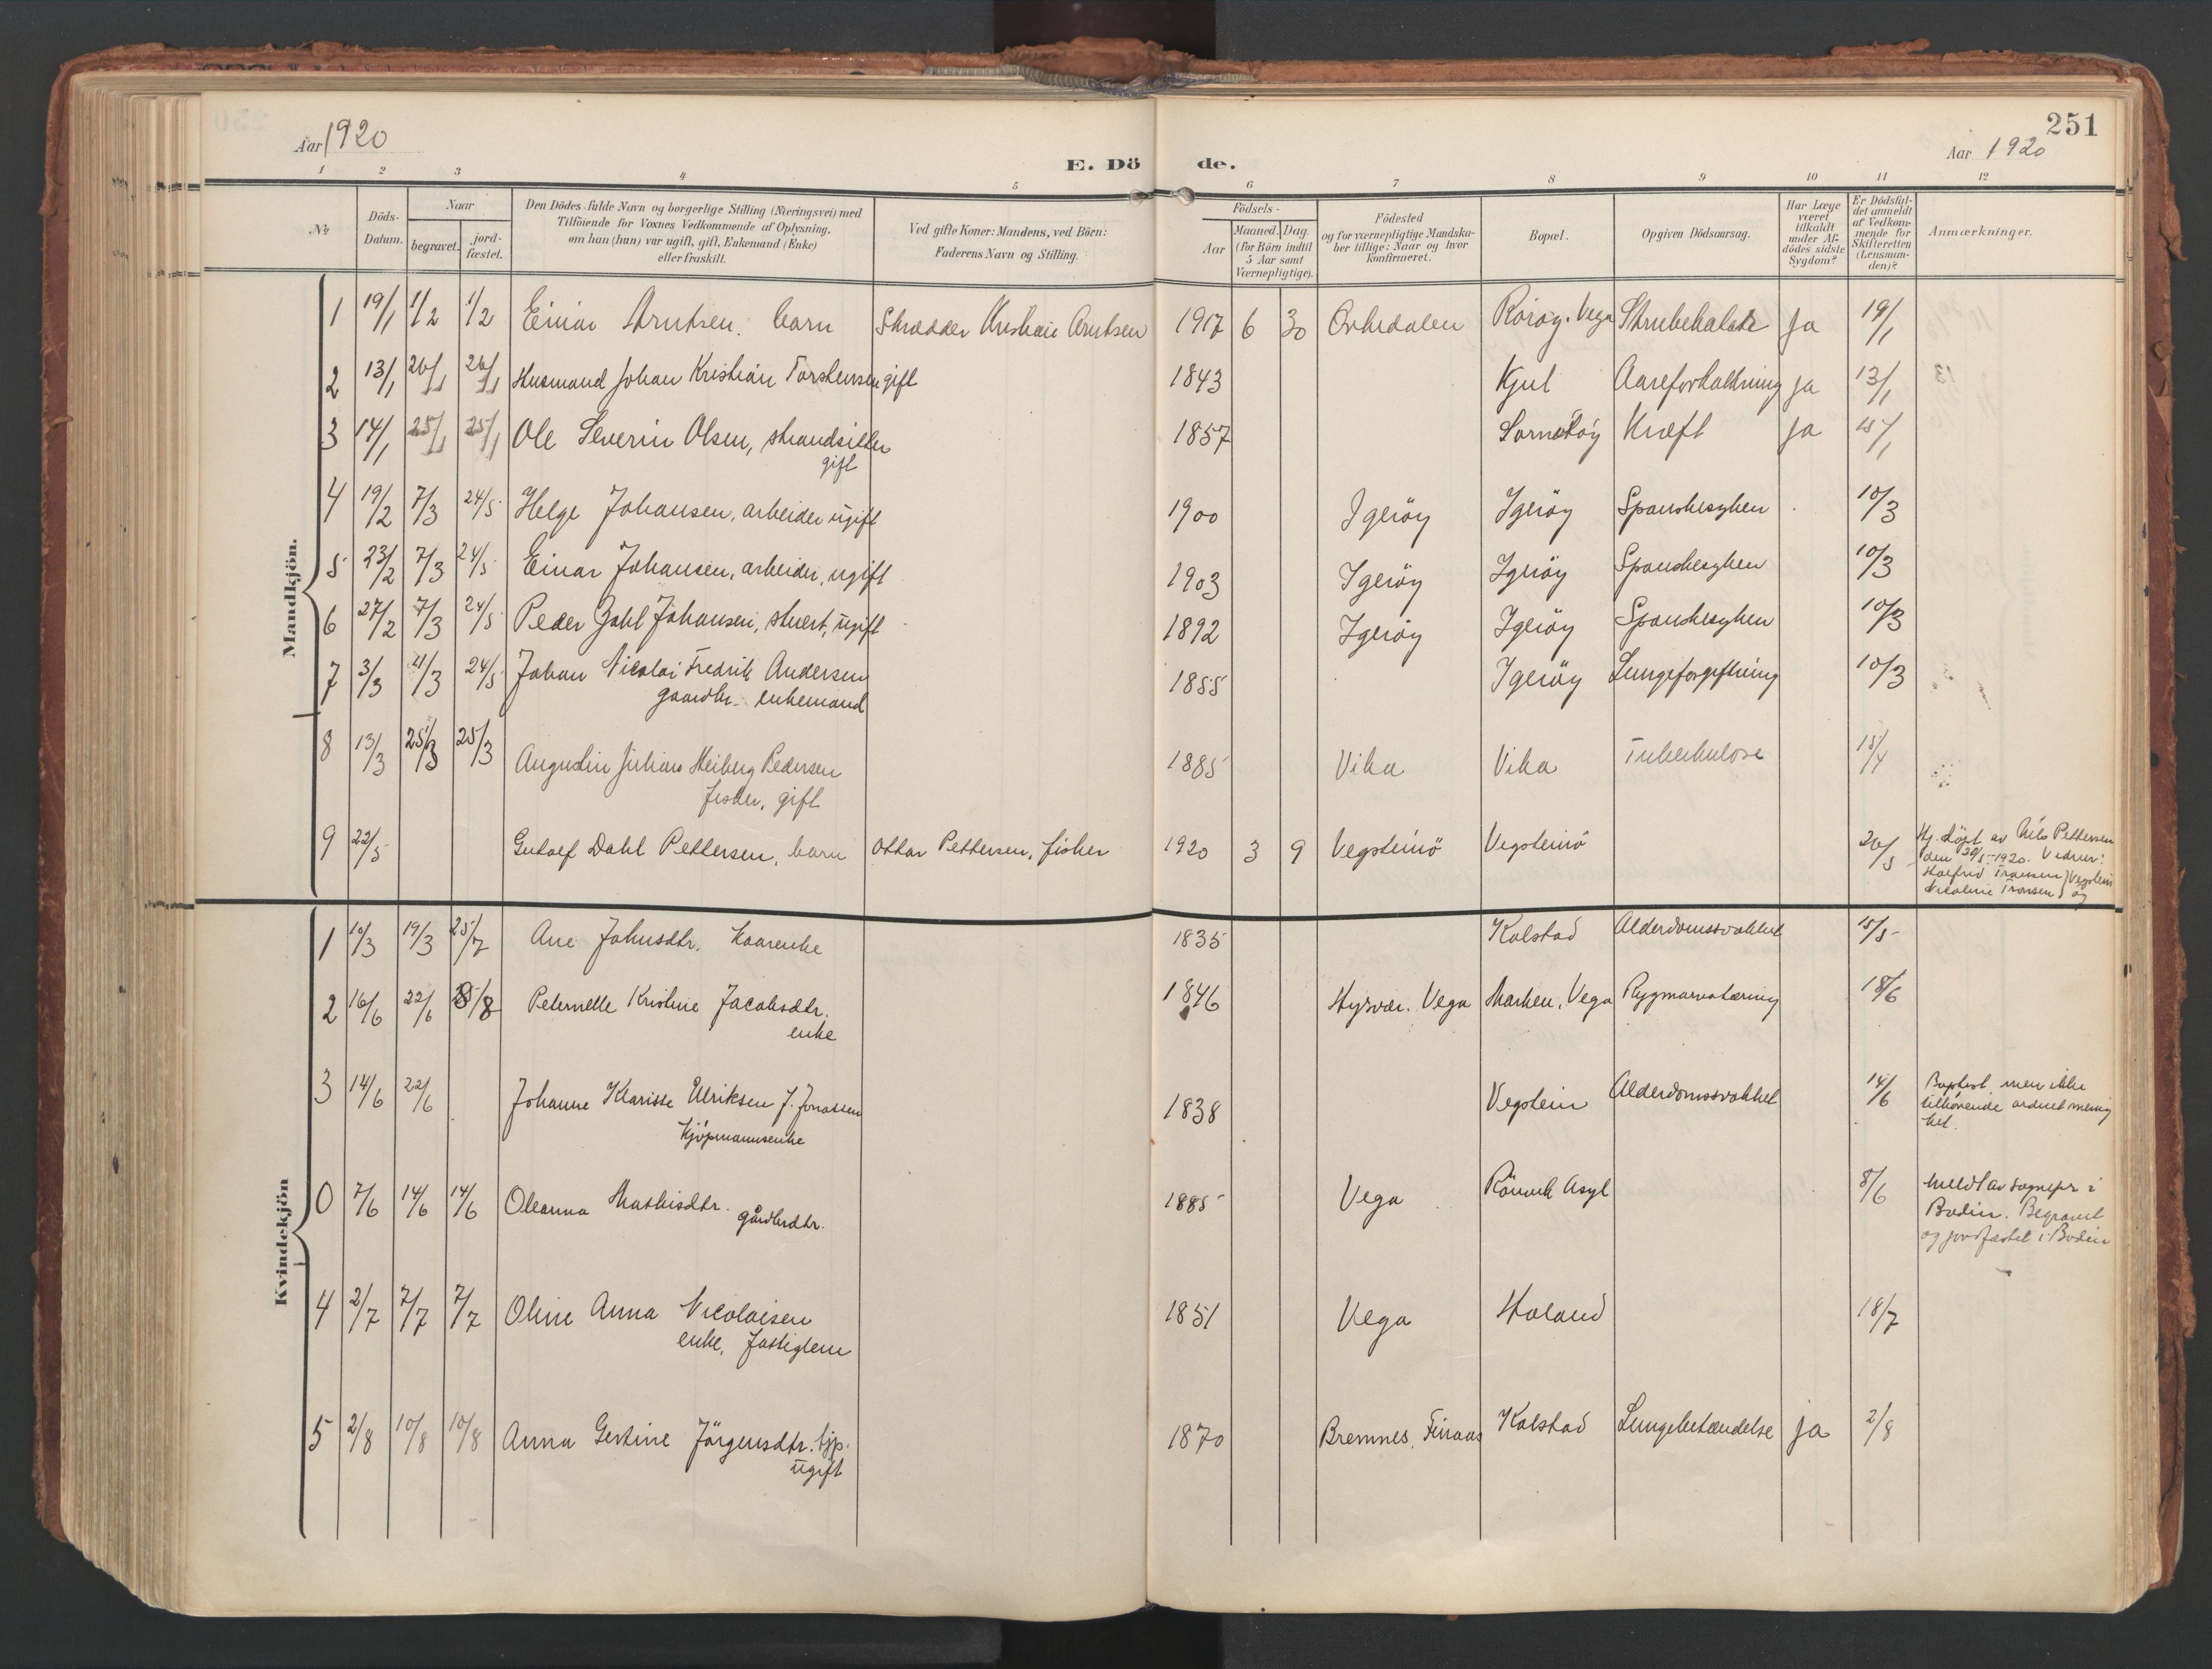 251
Aar 1920
E. Dö de.
Aar 1920
1 2 3 4 5 6 7 8 9 10 11 12
No
Döds-Datum.
Naar
begravet.
jord-fæstet.
Den Dödes fulde Navn og borgerlige Stilling (Næringsvei) med
Tilföiende for Voxnes Vedkommende af Oplysning,
om han (hun) var ugift, gift, Enkemand (Enke)
eller fraskilt.
Ved gifte Koner: Mandens, ved Börn:
Faderens Navn og Stilling.
Födsels-
Aar
Maaned. Dag.
(for Börn indtil
5 Aar samt
Værnepligtige).
Födested
og for værnepligtige Mandska-
ber tillige: Naar og hvor
konfirmeret.
Bopæl.
Opgiven Dödsaarsag.
Har Læge
været
tilkaldt
under Af-
dödes sidste
Sygdom?
Er Dödsfal-
det anmeldt
af Vedkom-
mende for
Skifteretten
(Lensman-
den)?
Anmærkninger.
Mandkjön.
1 19/1 1/2 1/2 Einar Arntsen. barn Skrædder Kristian Arntsen 1917 6 30 Orkedalen Rörøy. Vega Strubehalate ja 19/1
2 13/1 26/1 26/1 Husmand Johan Kristian Torstensen gift 1843 Kjul Aareforkalkning ja 13/1
3 14/1 25/1 25/1 Ole Severin Olsen, strandsitter 1857 Kræft ja 15/1
gift
4 19/2 7/3 24/5 Helge Johansen, arbeider ugift 1900 Igerøy Igerøy Spanskesyken 10/3
5 23/2 7/3 24/5 Einar Johansen, arbeider, ugift 1903 Igerøy Igerøy Spanskesyken 10/3
6 27/2 7/3 24/5 Peder Zahl Johansen, stuert, ugift 1892 Igerøy Igerøy Spanskesyken 10/3
7 3/3 11/3 24/5 Johan Nicolai Fredrik Andersen 1855 Igerøy Lungeforgiftning 10/3
gaardbr. enkemand
8 13/3 25/3 25/3 Augustin Julius Heiberg Pedersen 1885 Vika Vika Tuberkulose 15/4
fisker, gift
9 22/5 Gutolf Dahl Pettersen, barn Ottar Pettersen, fisker 1920 3 9 Vegsteinö Vegsteinö 26/5 Hj. døpt av Nils Pettersen
den 20/5-1920. Vidner:
Halfrid Tronsen } Vegstein
Nicoline Tronsen } øy
Kvindekjön
1 10/3 19/3 25/7 Ane Johnsdtr. kaarenke 1835 Kolstad Alderdomssvakhet 15/5
2 16/6 22/6 25/8 Peternelle Kristine Jacobsdtr. 1846 Hysvær. Vega Marken, Vega Rygmarvstæring 18/6
enke
3 14/6 22/6 Johanne Klarisse Ulriksen f. Jonassen 1838 Vegstein Alderdomssvakhet 14/6 Baptist, men ikke
kjöpmannsenke tilhørende ordnet menig
het.
0 7/6 14/6 14/6 Oleanna Mathisdtr. gårdbrdtr. 1885 Vega Rönvik Asyl 8/6 Meldt av sognepr i
Bodin. Begravet
og jordfæstet i Bodin
4 2/7 7/7 7/7 Oline Anna Nicolaisen 1851 Vega Holand 18/7
enke, fattiglem
5 2/8 10/8 10/8 Anna Gertine Jörgensdtr. tjp. 1870 Bremnes, Finaas Kolstad Lungebetændelse ja 2/8
ugift